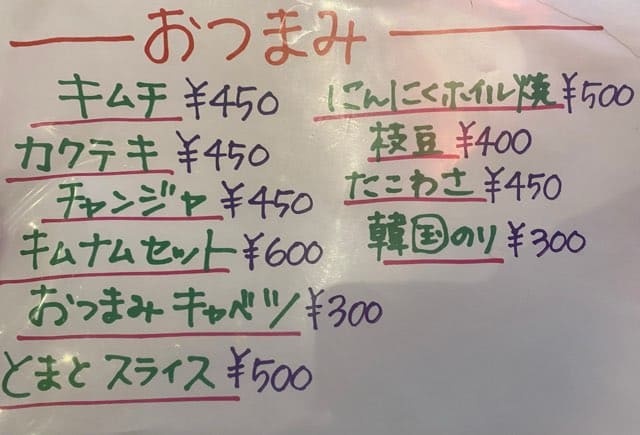 おつまみ
キムチ ¥450
カクテキ ¥450
チャンジャ ¥450
キムナムセット ¥600
おつまみキャベツ ¥300
とまとスライス ¥500
にんにくホイル焼 ¥500
枝豆 ¥400
たこわさ ¥450
韓国のり ¥300